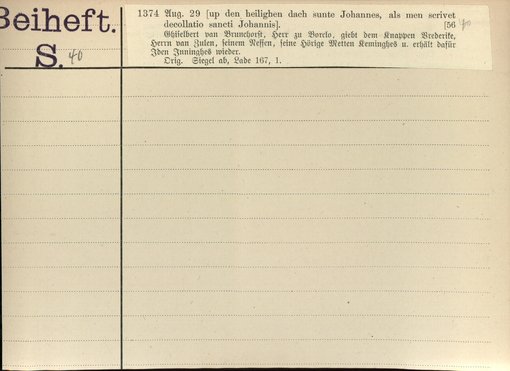 Beiheft.
S. 40
1374 Aug. 29 [up den heilighen dach sunte Johannes, als men scrivet
decollatio sancti Johannis]. [56
Ghiselbert van Brunchorst, Herr zu Borclo, giebt dem Knappen Vrederike,
Herrn van Zulen, seinem Neffen, seine Hörige Metten Keminghes u. erhält dafür
Iden Inninghes wieder.
Orig. Siegel ab, Lade 167, 1.